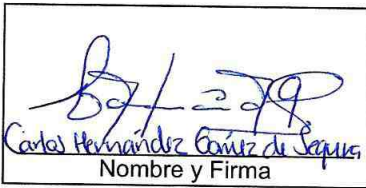 Carlos Hernández Gómez de Segura
Nombre y Firma